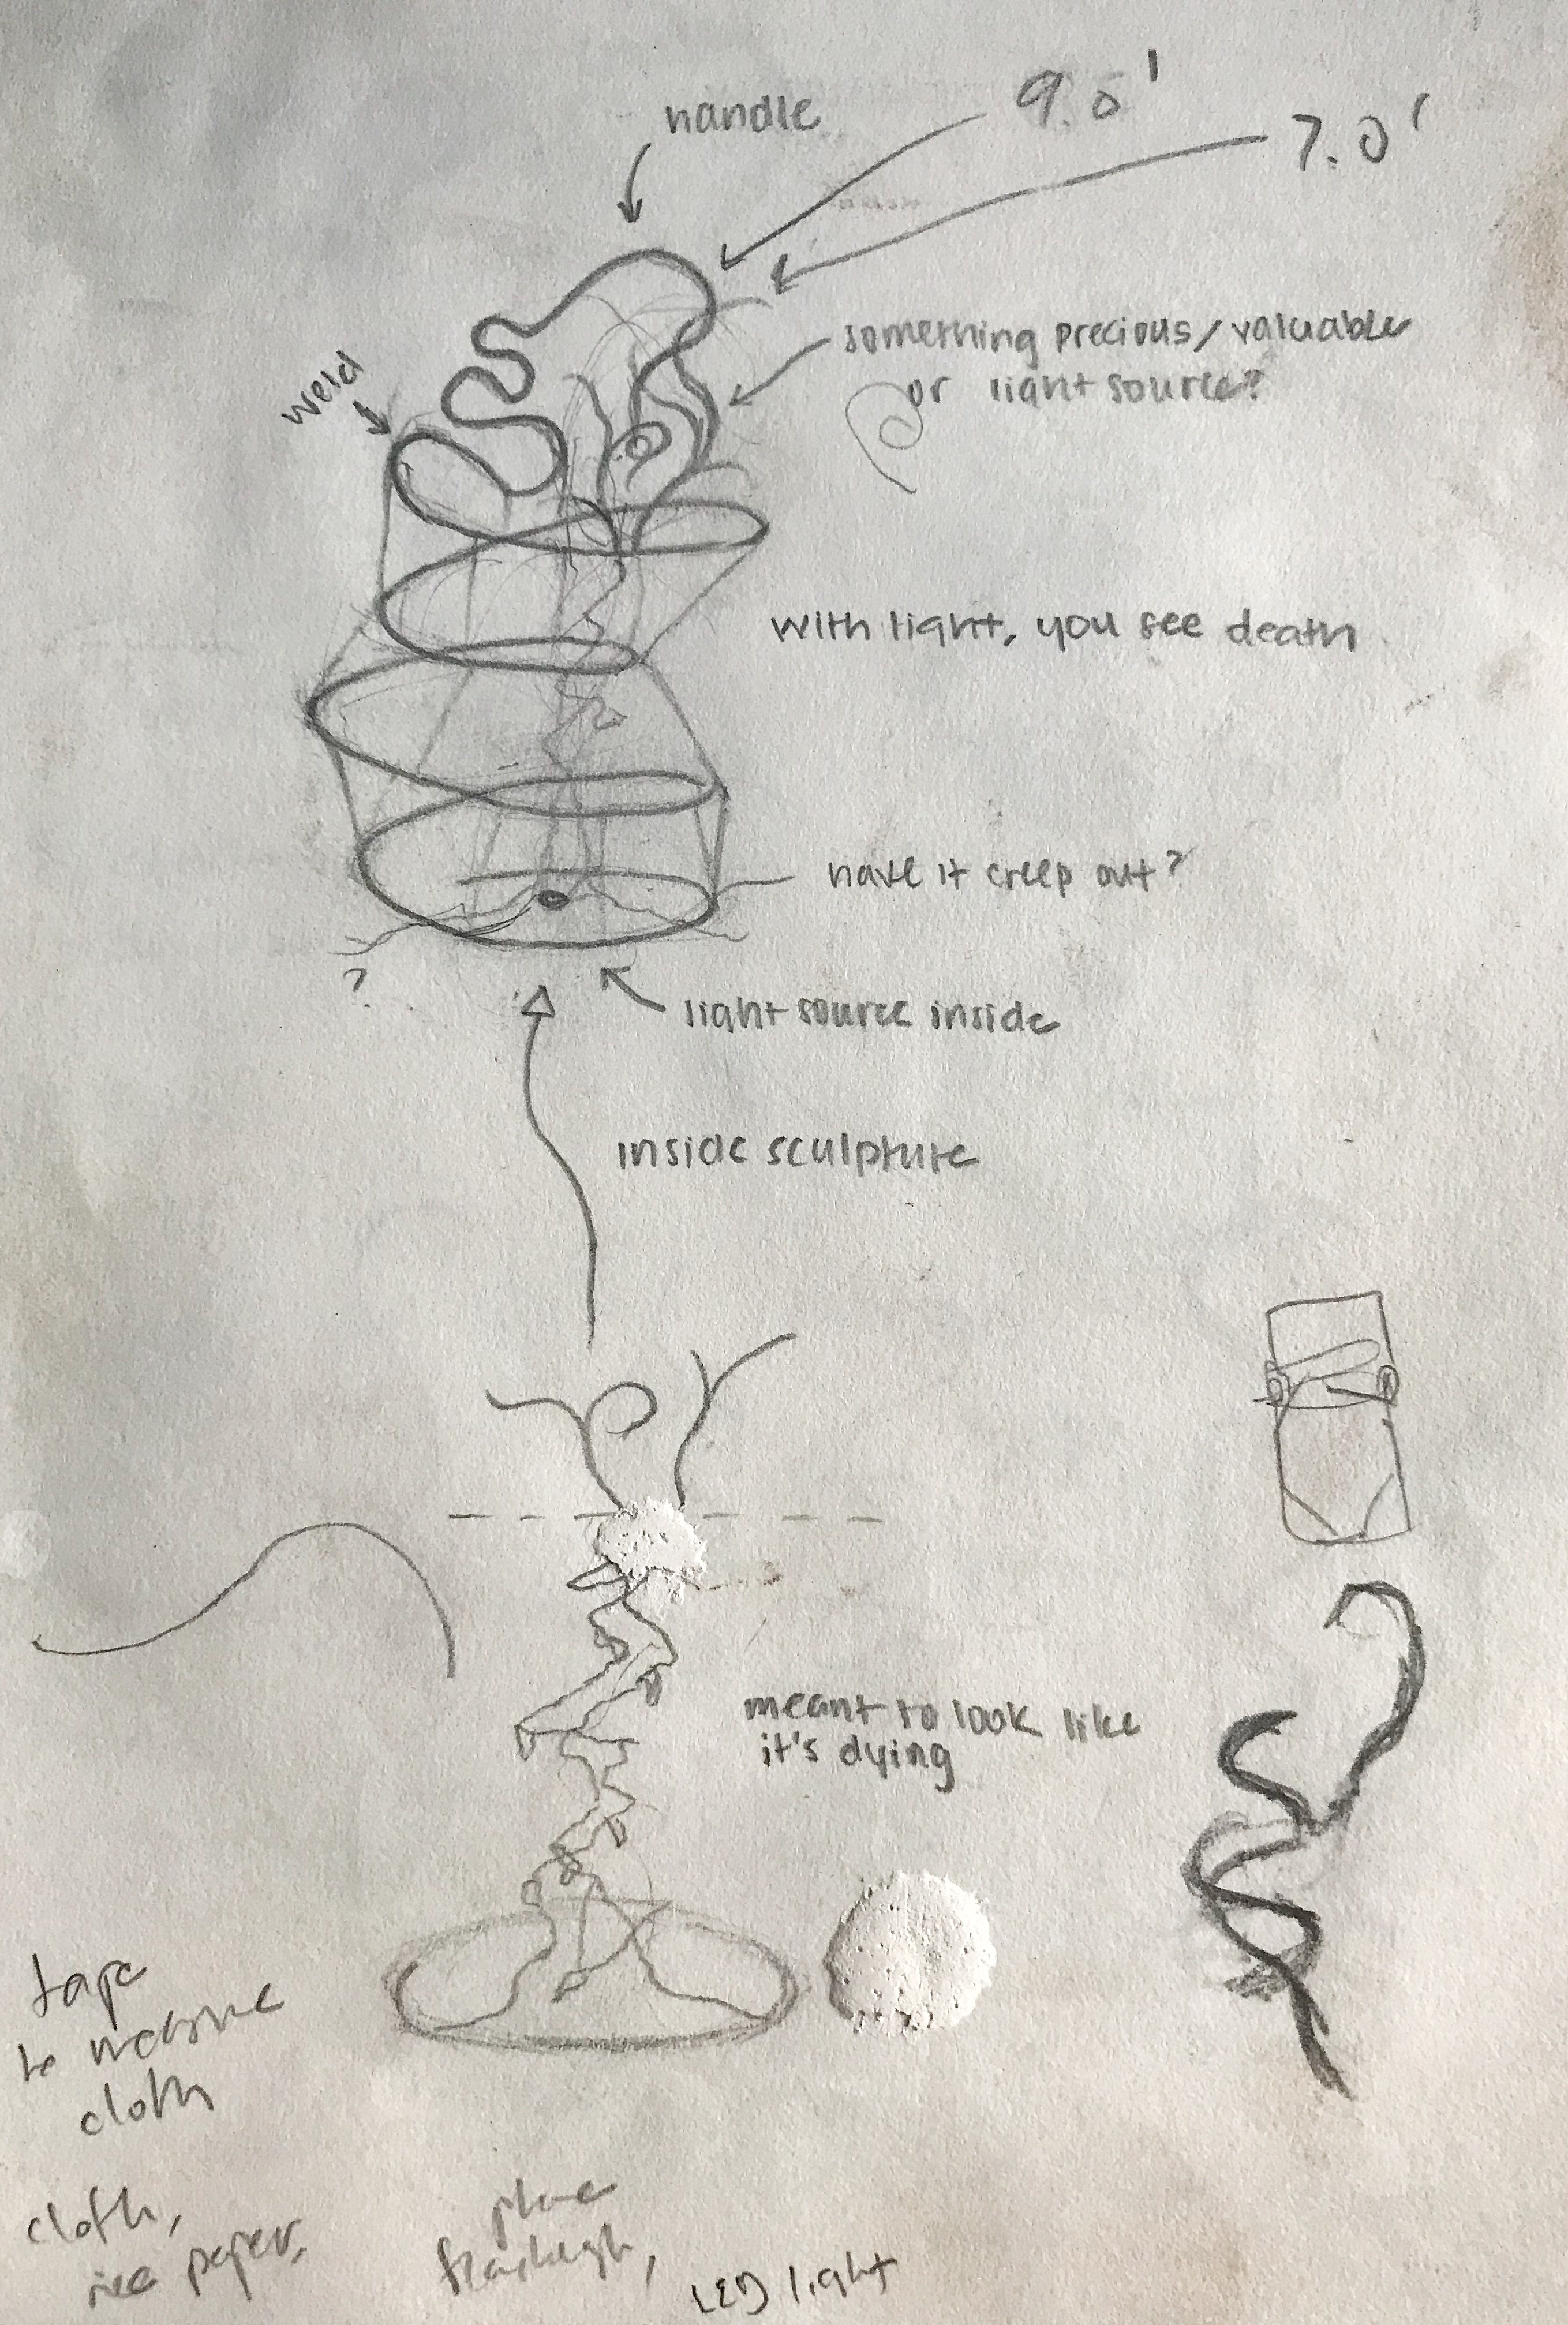 handle
9.5'
7.0'
something precious/valuable
or light source?
weld
with light, you see death
have it creep out?
?
light source inside
inside sculpture
meant to look like
it's dying
tape
to measure
cloth
cloth,
rice paper,
phone
flashlight,
LED light